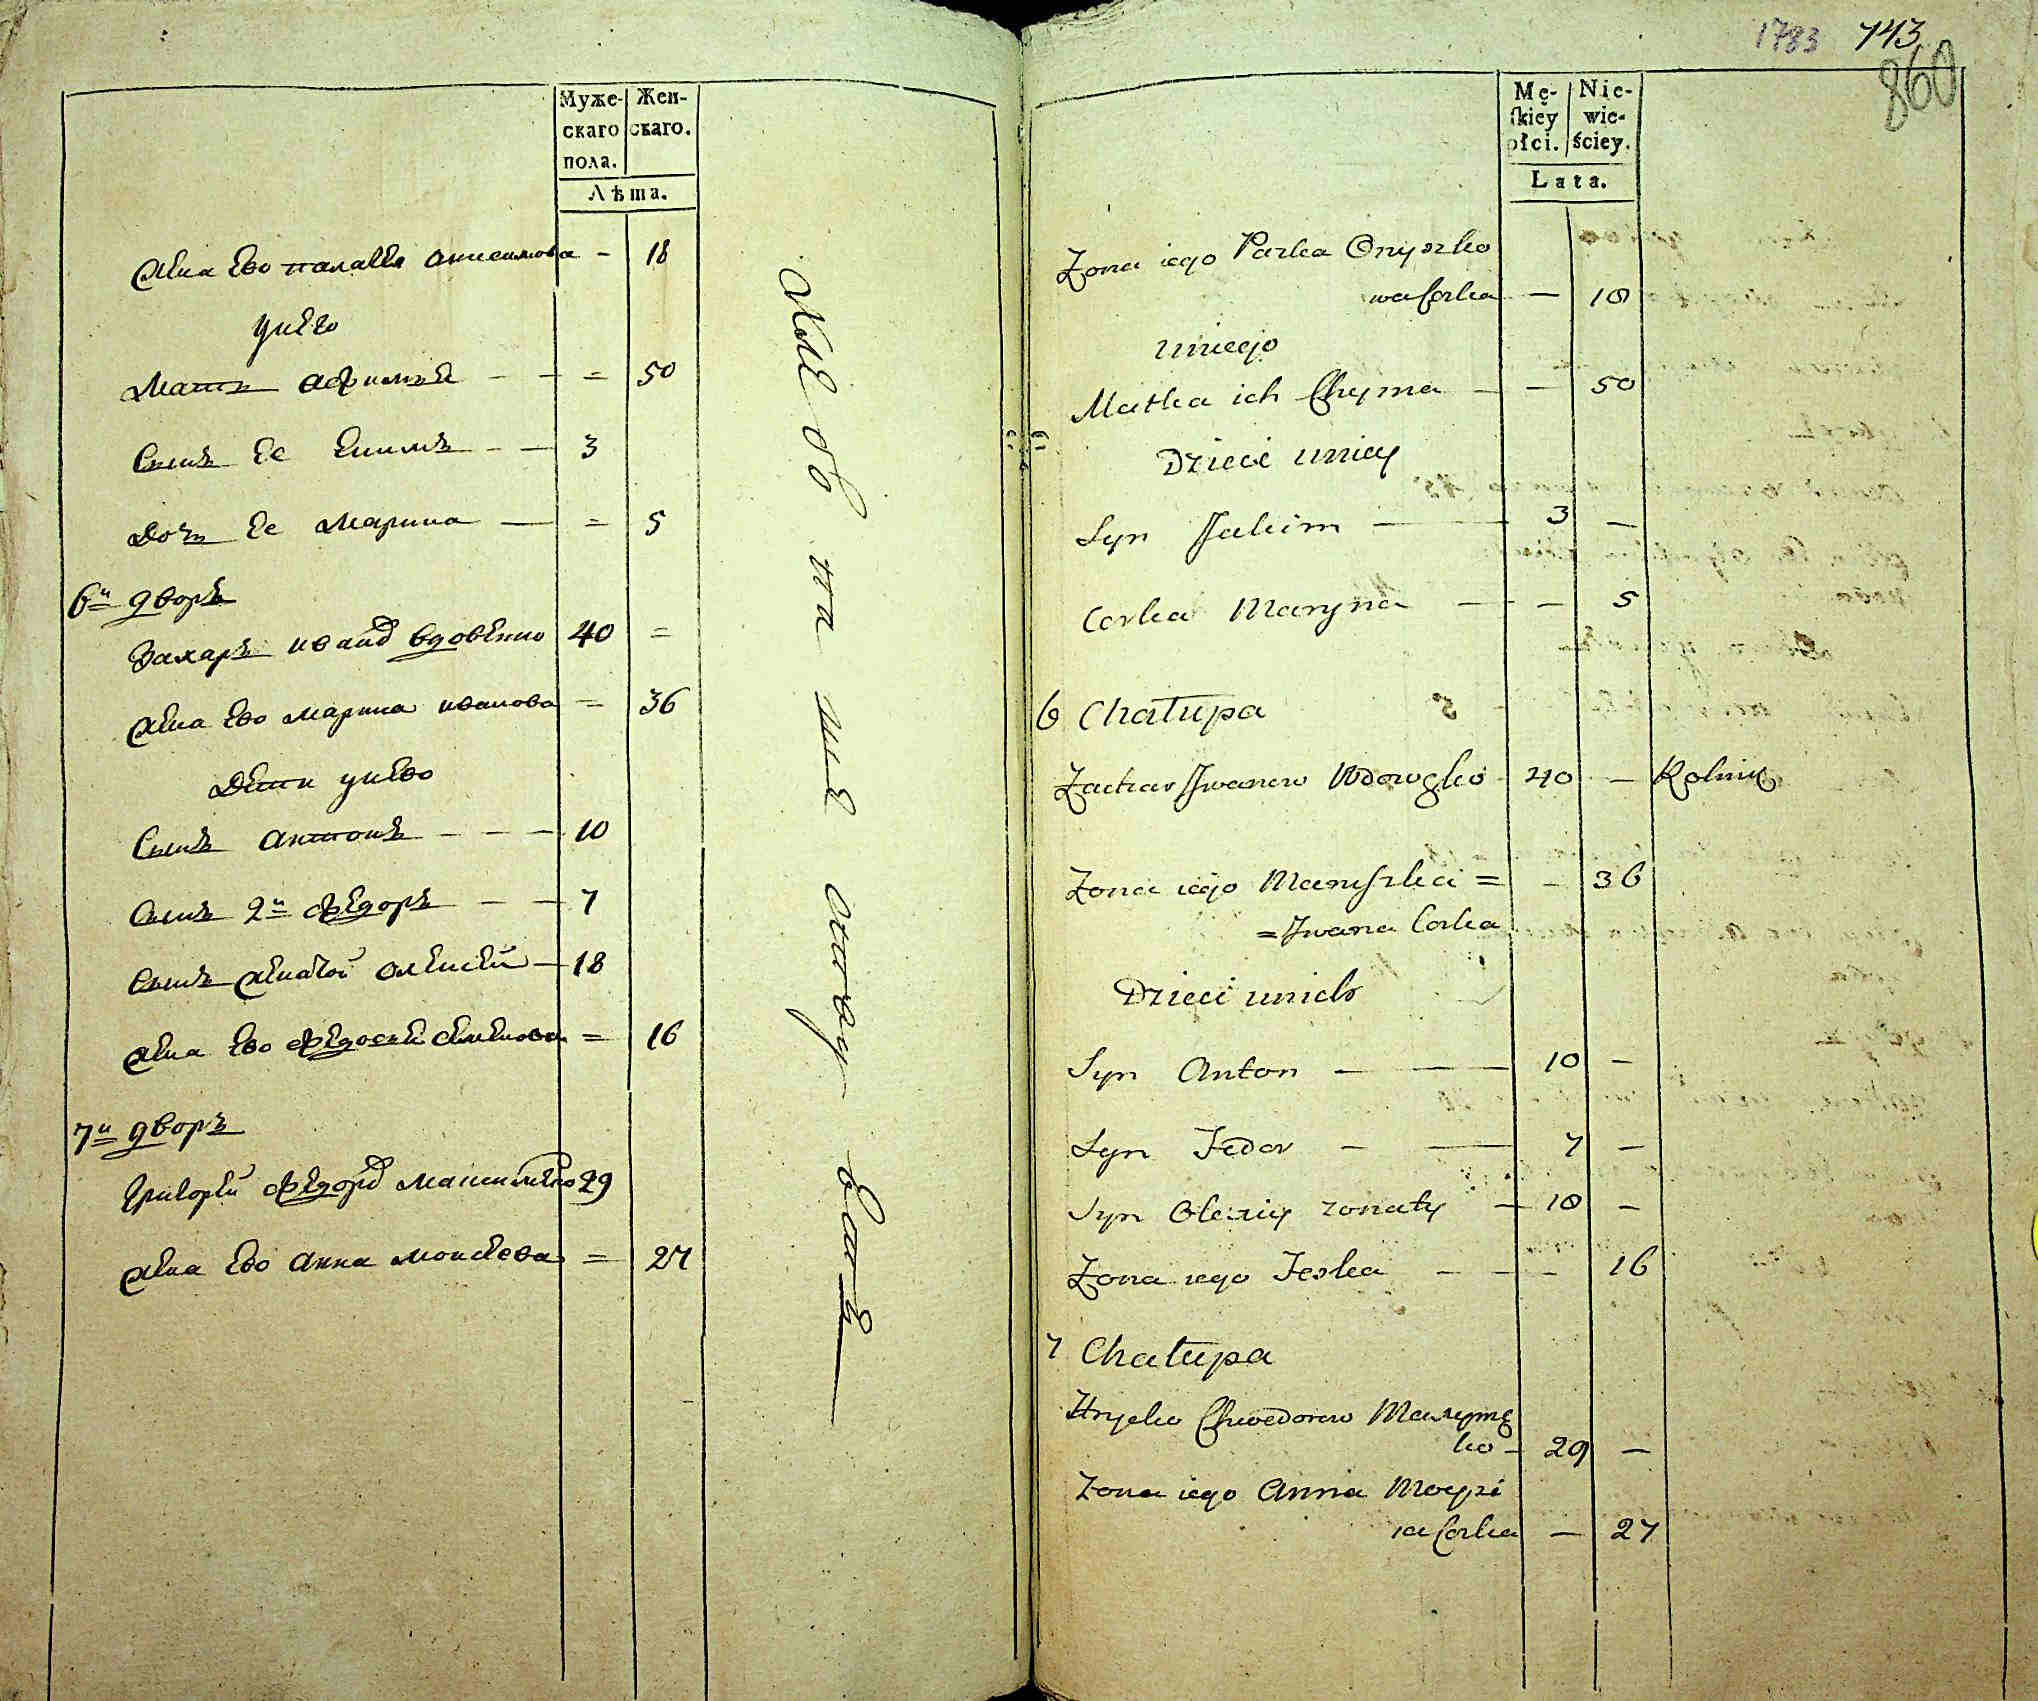 Муже-
скаго
пола.
Жен-
скаго.
Лѣта.
жена ево палажка анисимова – 18
у него
мать афимья – – = 50
сынъ ее екимъ – – 3
дочь ее марина — = 5
6й дворъ
Захаръ ивановъ вдовенко 40 =
жена ево марина иванова = 36
Дети у нево
сынъ антонъ – – – 10
сынъ 2й федоръ – – 7
сынъ женатой олексей – 18
жена ево федосья семенова = 16
7й дворъ
григорей федоровъ максименко 29
жена ево анна моисеева = 27
1783 743
860
Mę-
ſkiey
płci.
Nie-
wie-
ściey.
Lata.
Zona iego Parka Onyszko
wa Corka — 18
u niego
Matka ich Chyma – — 50
Dzieci u niey
Syn Jakim — 3 —
Corka Maryna — – 5
6 Chałupa
Zachar Iwanow Wdowęko 40 — Rolnik
Zona iego Maruſzka = – 36
= Iwana Corka
Dzieci u nich
Syn Anton – — — 10 –
Syn Fedor – — 7 –
Syn Olexiy zonaty – 18 –
Zona iego Feska – – – 16
7 Chałupa
Hrycko Chwedorow Maxymę
ko – 29 –
Zona iego Anna Moyzi
ia Corka — 27